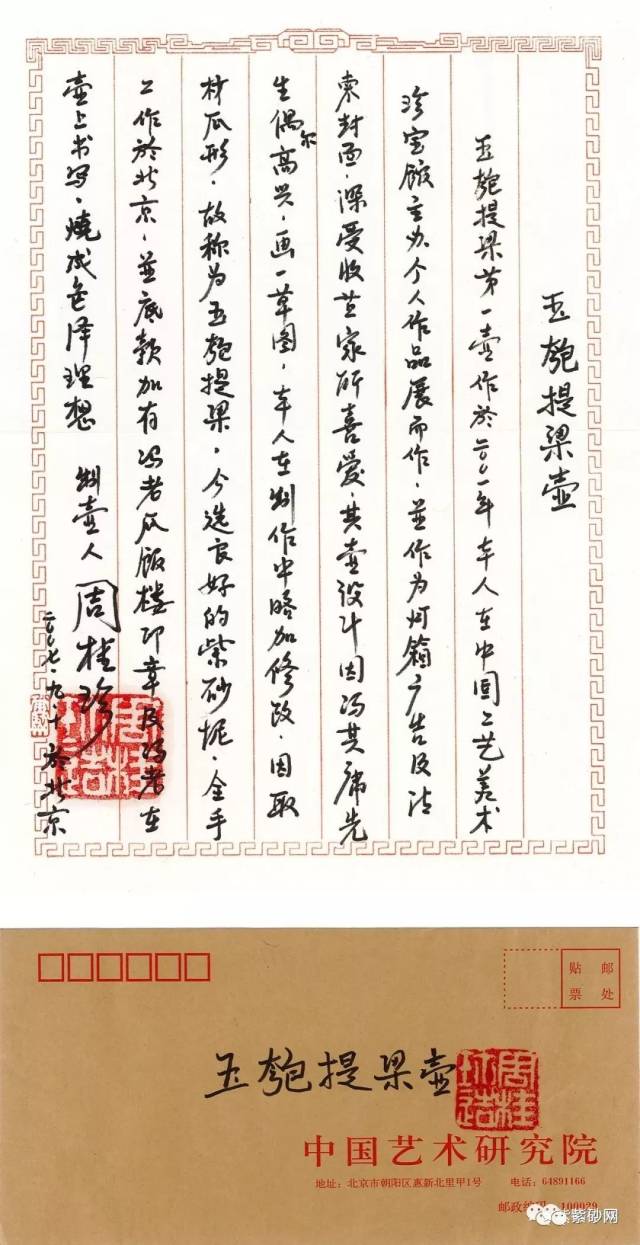 玉匏提梁壶
玉匏提梁第一壶作於二〇〇一年本人在中国工艺美术
珍宝馆主办个人作品展而作，並作为灯箱广告及请
柬封面，深受收芷家所喜爱，其壶设计因冯其庸先
生偶尔高兴，画一草图，本人在制作中略加修改，因取
材瓜形，故称为玉匏提梁，今选良好的紫砂坭，全手
工作於北京，並底款加有冯老瓜饭楼印章及冯老在
壶上书写，燒成色泽理想 制壶人 周桂珍
二〇〇七·九·十 於北京
周桂珍造
邮
贴
处
票
玉匏提梁壶
周桂珍造
中国艺术研究院
地址：北京市朝阳区惠新北里甲1号 电话：64891166
邮政编码：100029
紫砂网